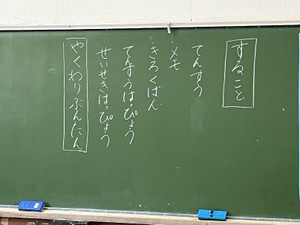 すること
てんすう
メモ
きろくばん
てんすうはっぴょう
せいせきはっぴょう
やくわりぶんたん